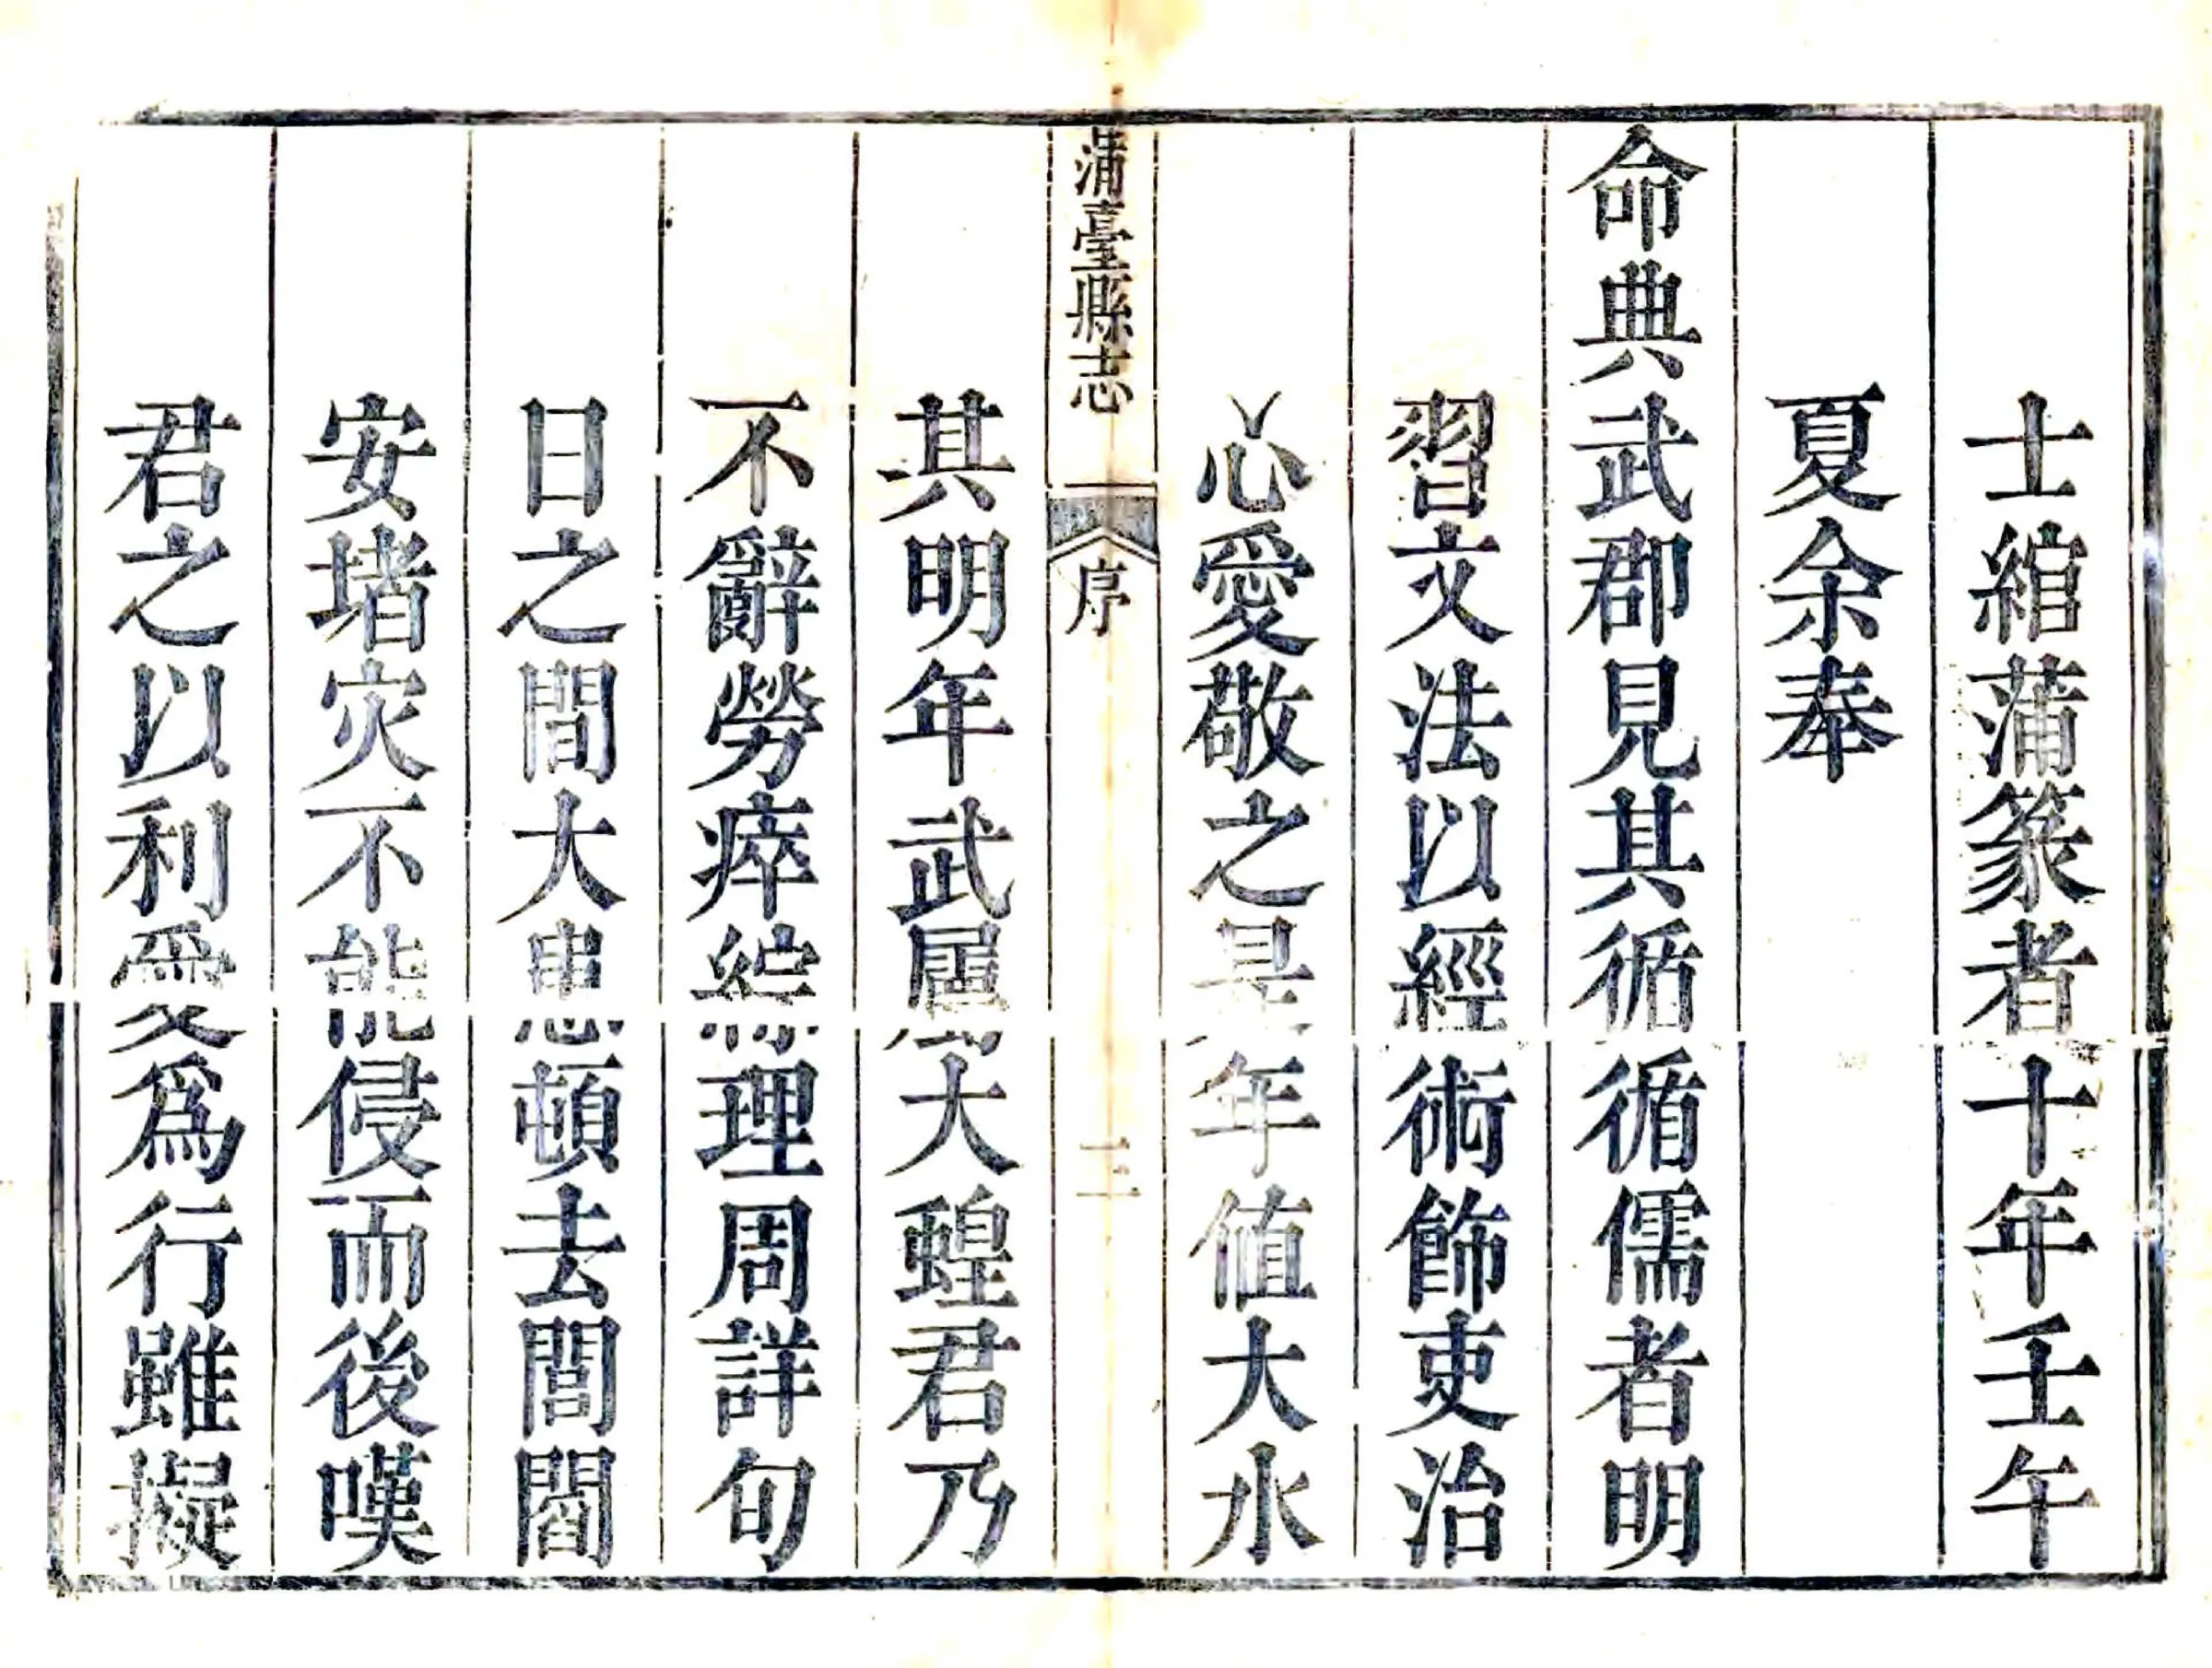 士綰蒲篆者十年壬午
夏余奉
命典武郡見其循循儒者明
習文法以經術飾吏治
心愛敬之是年值大水
蒲臺縣志
序
二
其明年武屬大蝗君乃
不辭勞瘁綜理周詳旬
日之間大患頓去閭閻
安堵灾不能侵而後嘆
君之以利愛爲行雖擬